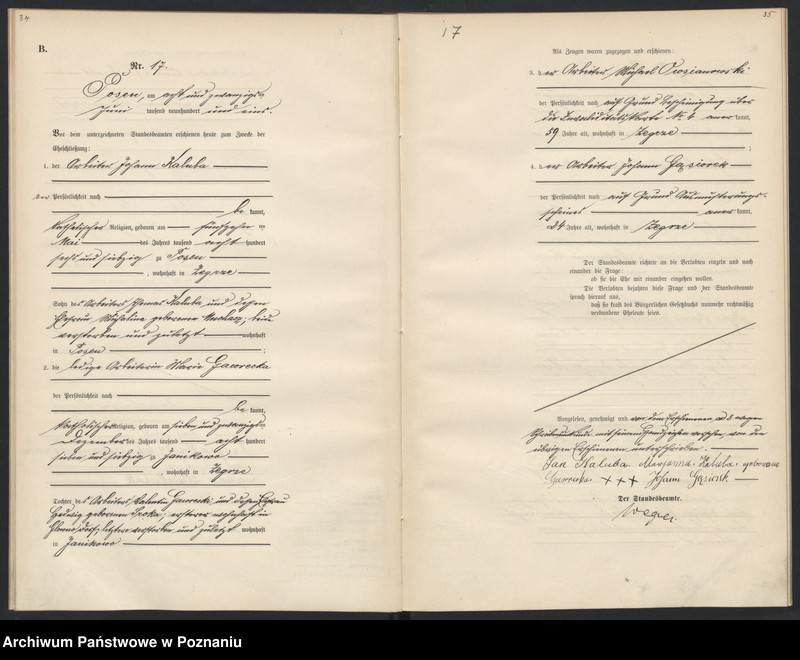 34
B.
Nr. 17.
Posen, am acht und zwanzigsten
Juni tausend neunhundert und eins.
Vor dem unterzeichneten Standesbeamten erschienen heute zum Zwecke der
Eheschließung:
1. der Arbeiter Johann Kaluba
der Persönlichkeit nach
be kannt,
katholischer Religion, geboren am fünfzehn ten
Mai des Jahres tausend acht hundert
sechs und siebzig zu Posen
, wohnhaft in Zegrze
Sohn des Arbeiters Thomas Kaluba und dessen
Ehefrau geborenen beide
verstorben und zuletzt wohnhaft
in Posen ;
2. die ledige Arbeiterin Marie Gawrecka
der Persönlichkeit nach
be kannt,
katholischer Religion, geboren am sieben und zwanzigsten
Dezember des Jahres tausend acht hundert
sieben und siebzig zu Janikowo
, wohnhaft in Zegrze
Tochter des Arbeiters Valentin Gawrecki und dessen Ehefrau
Hedwig geborenen ersterer wohnhaft in
letztere verstorben und zuletzt wohnhaft
in Janikowo
17
35
Als Zeugen waren zugezogen und erschienen:
3. der Arbeiter Michael
der Persönlichkeit nach auf Grund Bescheinigung über
die Invaliditätskarte Nr. 4 aner kannt,
59 Jahre alt, wohnhaft in Zegrze
;
4. der Arbeiter Johann Gąsiorek
der Persönlichkeit nach auf Grund Ausmusterungs-
scheines aner kannt,
24 Jahre alt, wohnhaft in Zegrze
Der Standesbeamte richtete an die Verlobten einzeln und nach
einander die Frage:
ob sie die Ehe mit einander eingehen wollen.
Die Verlobten bejahten diese Frage und der Standesbeamte
sprach hierauf aus,
daß sie kraft des Bürgerlichen Gesetzbuchs nunmehr rechtmäßig
verbundene Eheleute seien.
Vorgelesen, genehmigt und von dem Erschienenen ad 3 wegen
Schreibensunkunde mit seinem Handzeichen versehen, von den
übrigen Erschienenen unterschrieben.
Jan Kaluba Maryanna Kaluba geborene
Gawrecka + + + Johann Gąsiorek
Der Standesbeamte.
Archiwum Państwowe w Poznaniu